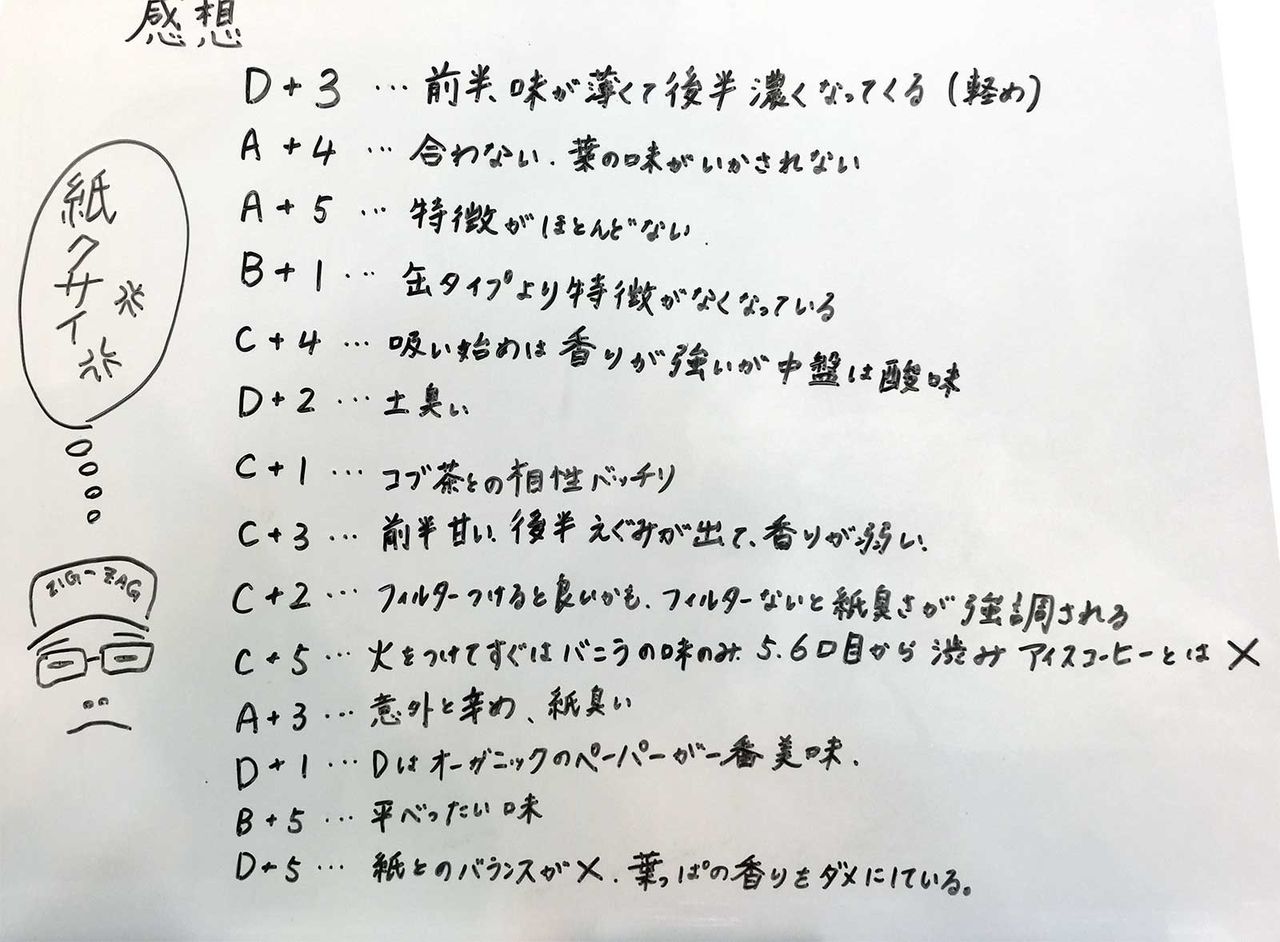 感想
D+3 … 前半、味が薄くて後半濃くなってくる(軽め)
A+4 … 合わない.葉の味がいかされない
A+5 … 特徴がほとんどない.
B+1 … 缶タイプより特徴がなくなっている
C+4 … 吸い始めは香りが強いが中盤は酸味
D+2 … 土臭い
C+1 … コブ茶との相性バッチリ
C+3 … 前半甘い.後半えぐみが出て、香りが弱い.
C+2 … フィルターつけると良いかも.フィルターないと紙臭さが強調される
C+5 … 火をつけてすぐはバニラの味のみ.5.6口目から渋み アイスコーヒーとは×
A+3 … 意外と辛め、紙臭い
D+1 … Dはオーガニックのペーパーが一番美味.
B+5 … 平べったい味
D+5 … 紙とのバランスが×.葉っぱの香りをダメにしている。
紙クサイ
ZIG-ZAG